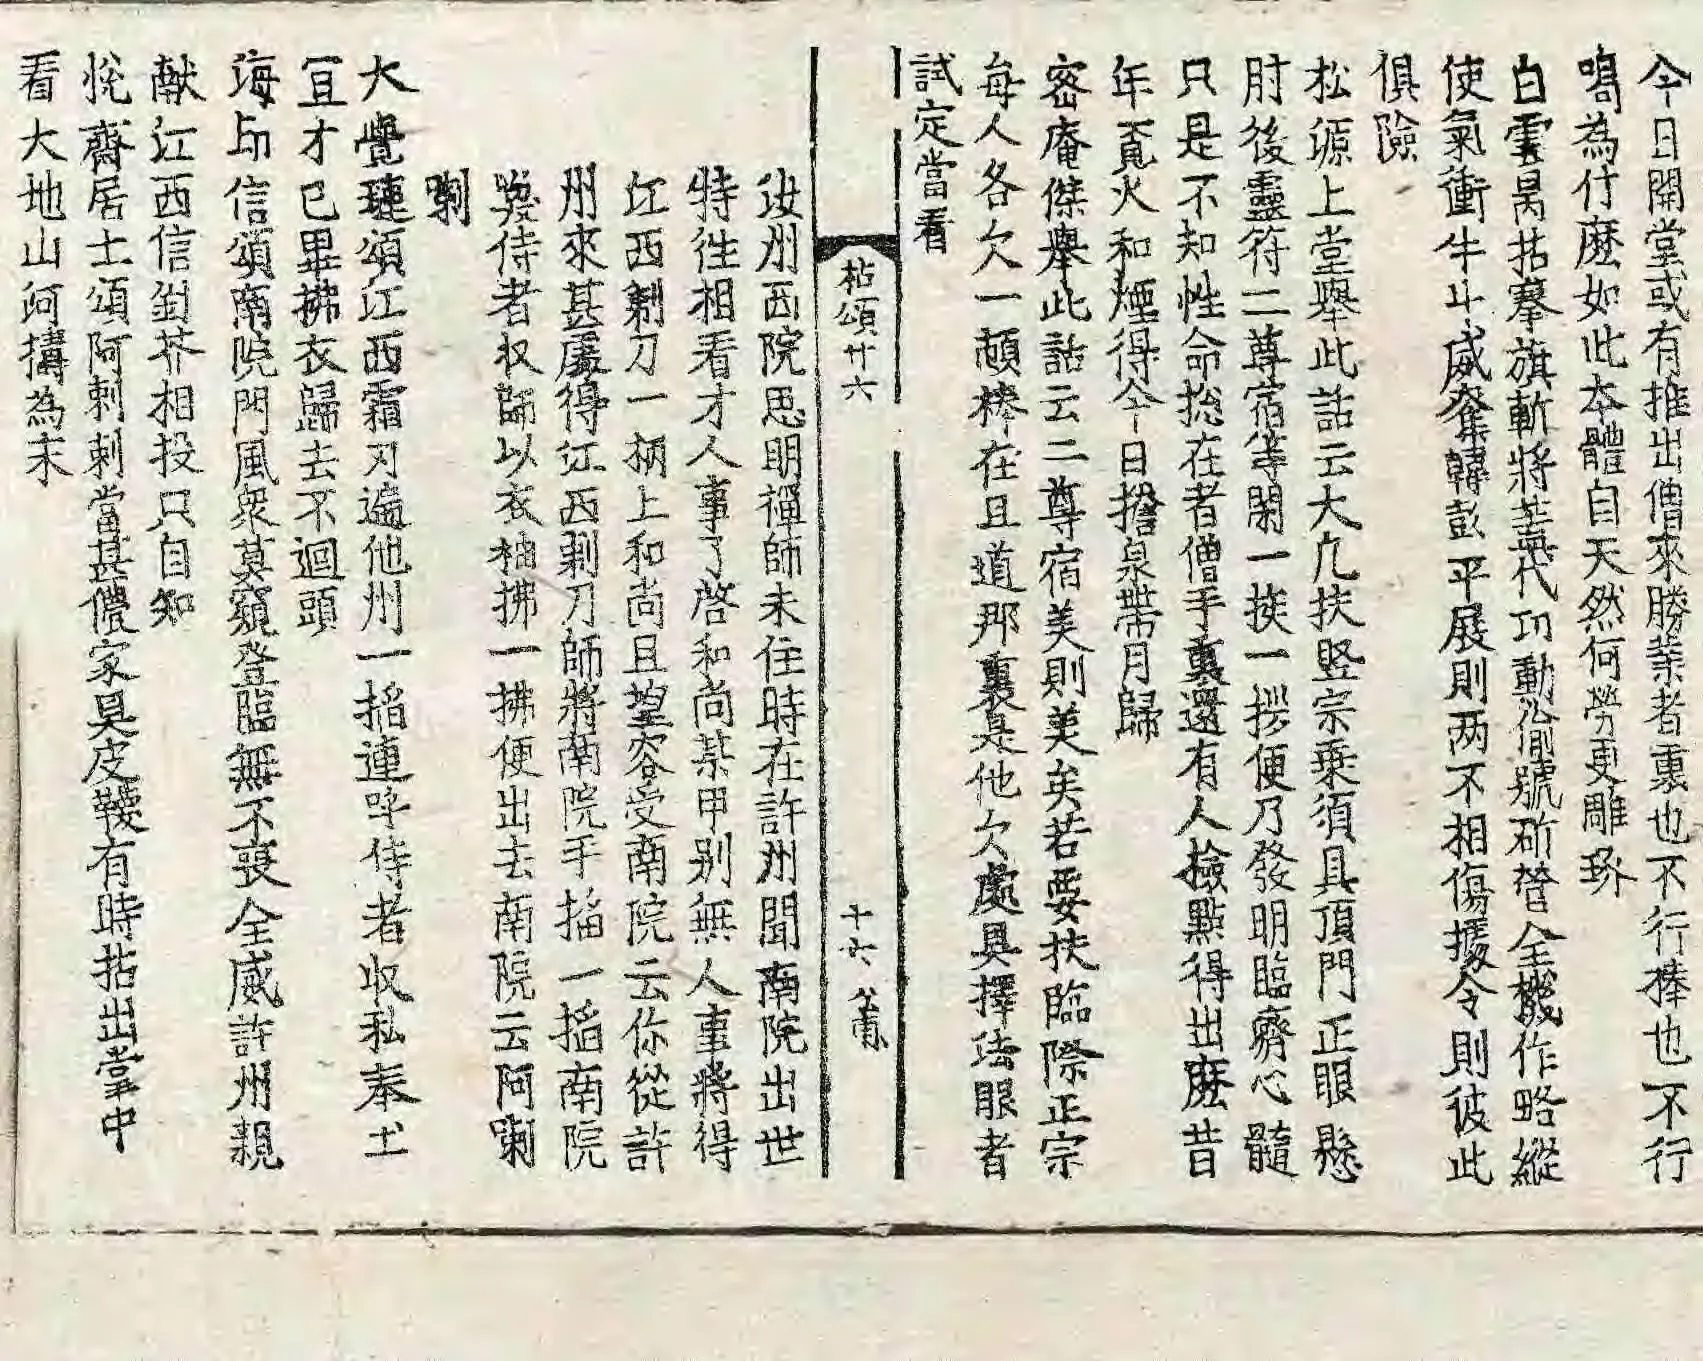 今日開堂或有推出僧來勝業者裏也不行棒也不行
喝為什麽如此本體自天然何勞更雕琢
白雲昺拈搴旗斬將蓋代功動偷號斫營全機作略縱
使氣衝牛斗威奪韓彭平展則两不相傷據令則彼此
俱險
松源上堂舉此話云大凡扶竪宗乗須具頂門正眼懸
肘後靈符二尊宿等閑一挨一拶便乃發明臨濟心髓
只是不知性命捴在者僧手裏還有人檢點得出麽昔
年覔火和煙得今日擔泉帶月歸
密庵傑舉此話云二尊宿美則美矣若要扶臨際正宗
每人各欠一頓棒在且道那裏是他欠處具擇法眼者
試定當看
拈頌廿六　十六
汝州西院思明禪師未住時在許州聞南院出世
特徃相看才人事了啓和尚某甲别無人事將得
江西剃刀一柄上和尚且望容受南院云你從許
州來甚處得江西剃刀師將南院手搯一搯南院
喚侍者収師以衣袖拂一拂便出去南院云阿喇
喇
大覺璉頌江西霜刃遍他州一搯連呼侍者収私奉土
冝才已畢拂衣歸去不迴頭
海印信頌南院門風衆莫窺登臨無不喪全威許州親
献江西信釗芥相投只自知
恱齋居士頌阿剌剌當甚儂家臭皮韈有時拈出掌中
看大地山河搆為末